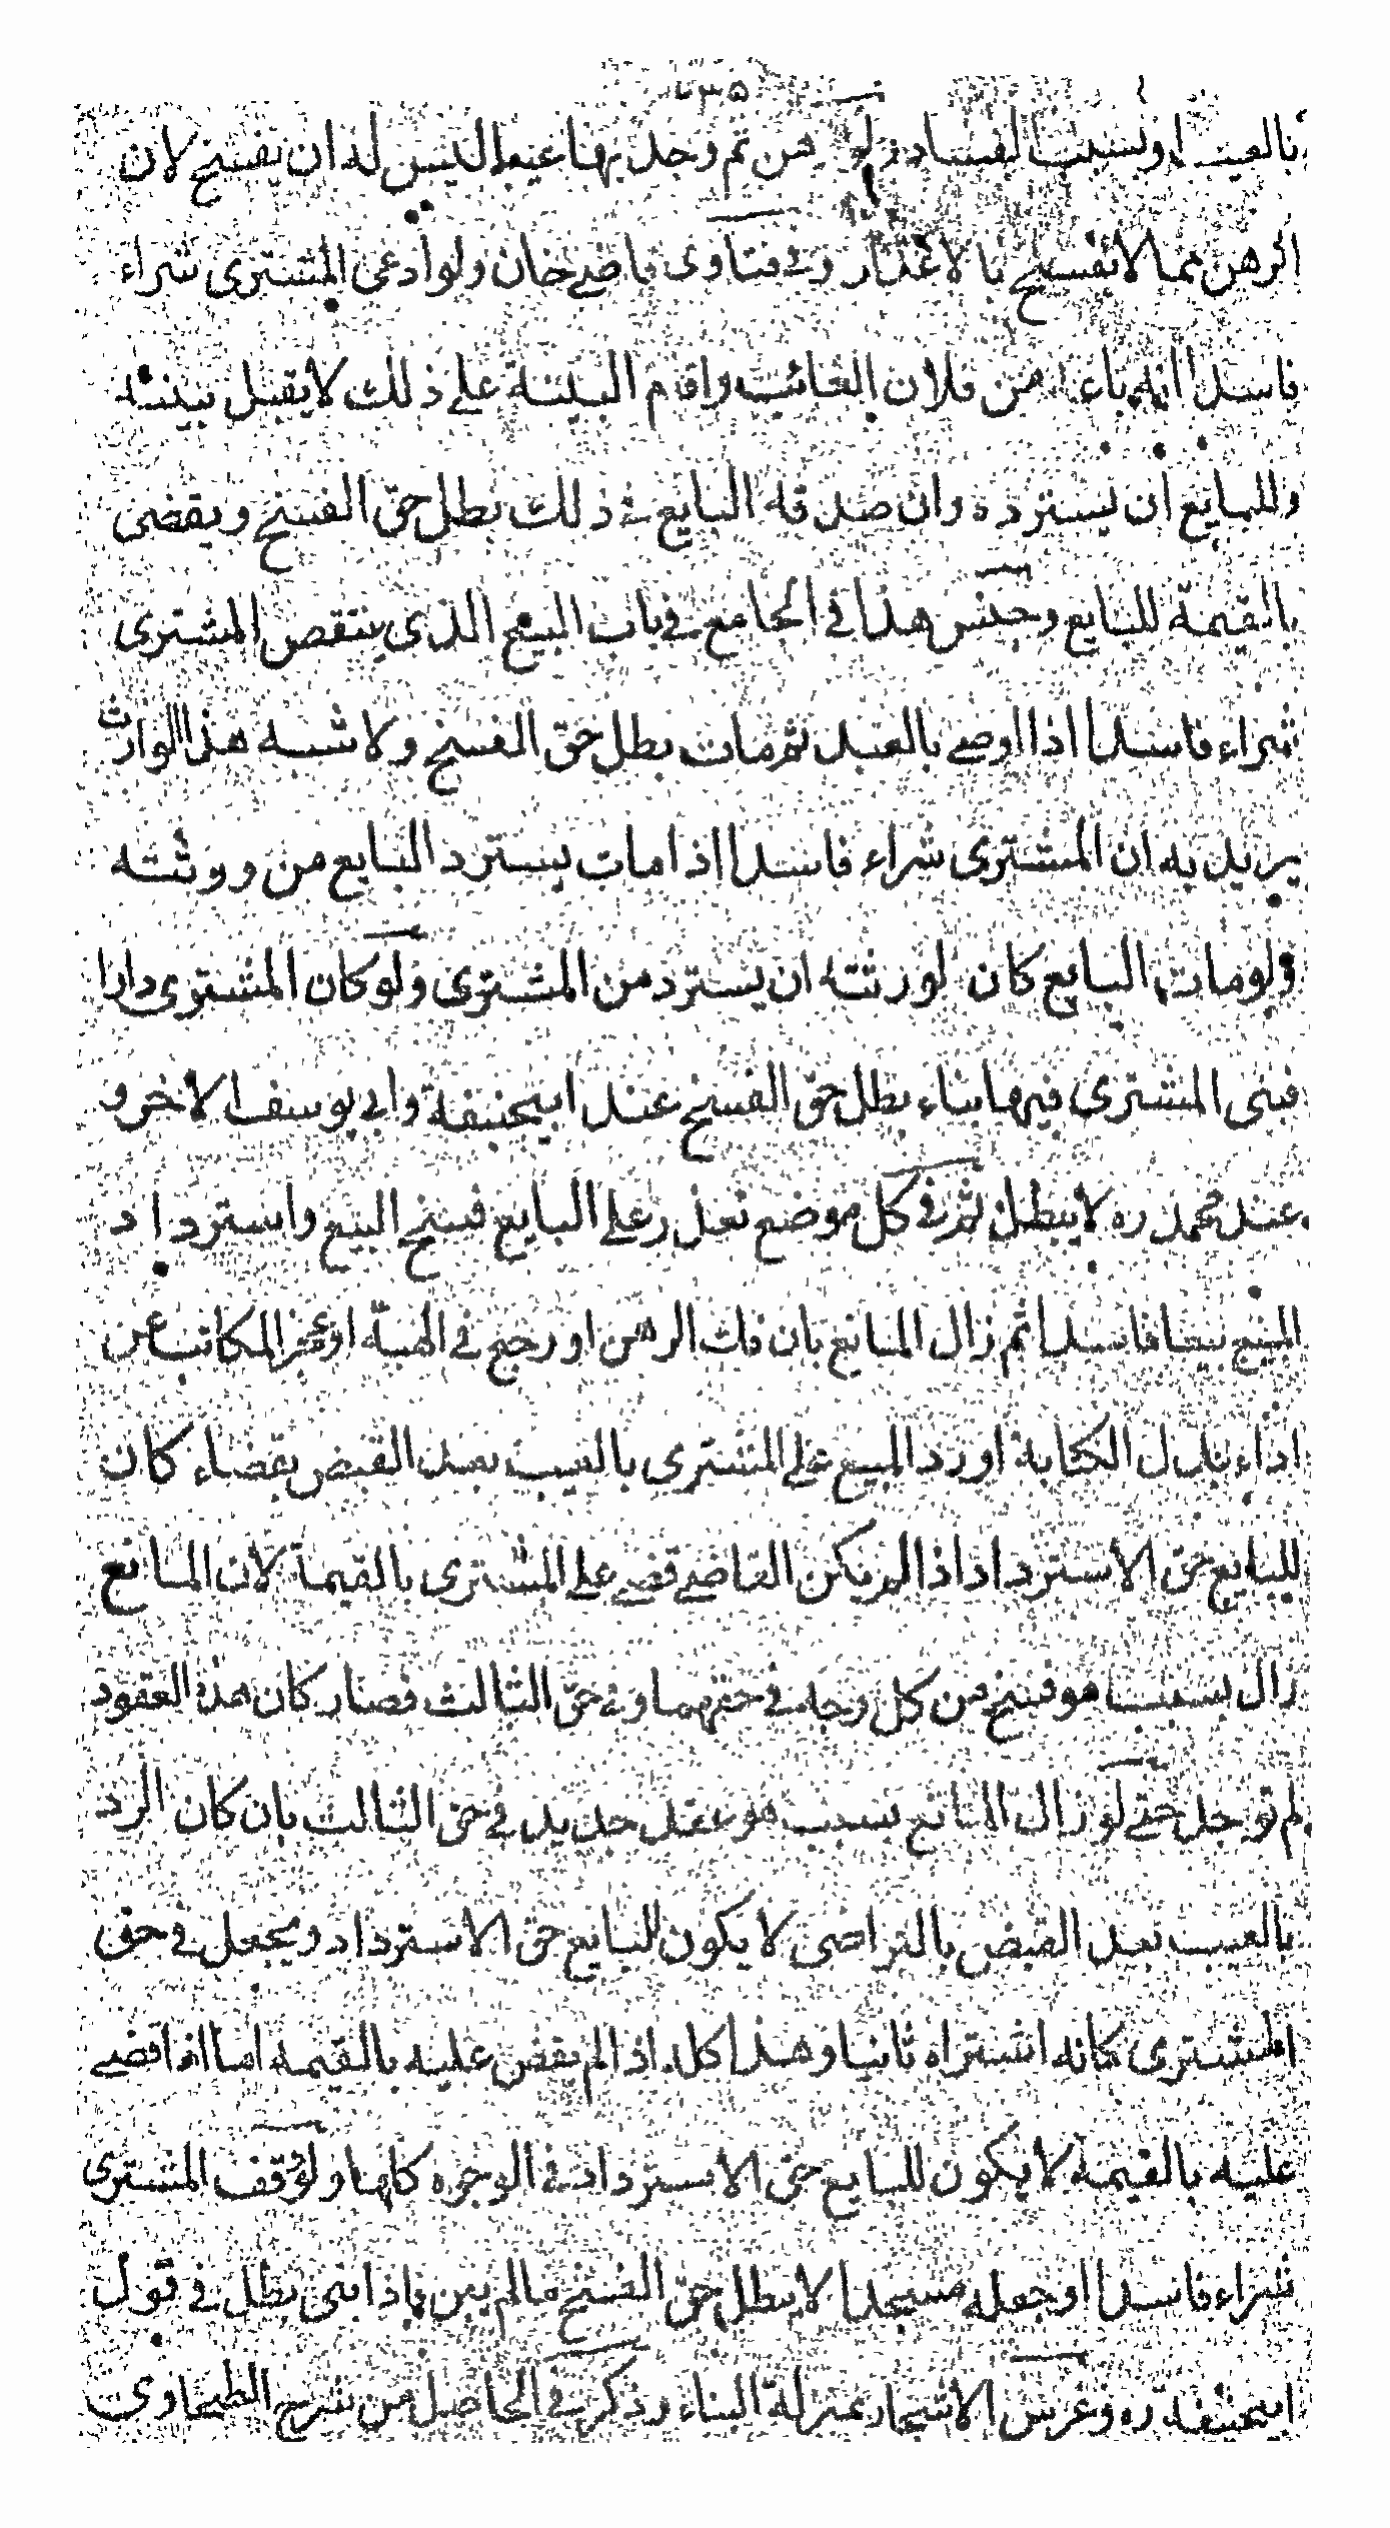 بالعيب او بسبب الفساد ولو رهن ثم وجد بها عيبا ليس له ان يفسخ لان
الرهن مما لا يفسخ بالاعذار وفي فتاوى قاضي خان ولو ادعى المشتري شراء
فاسدا انه باعه من فلان الغائب واقام البينة على ذلك لا يقبل بينته
وللبايع ان يسترده وان صدقه البايع في ذلك بطل حق الفسخ ويقضى
بالقيمة للبايع وجنس هذا في الجامع في باب البيع الذي ينتقض المشتري
شراء فاسدا اذا اوصى بالعبد ثم مات بطل حق الفسخ ولا شبه هذا الوارث
يريد به ان المشتري شراء فاسدا اذا مات يسترد البايع من وورثته
ولو مات البايع كان لورثته ان يسترد من المشتري ولو كان المشترى دارا
فبنى المشتري فيها بناء بطل حق الفسخ عند ابيحنيفة وابي يوسف الاخر و
عند محمد ره لا يبطل ثم في كل موضع تعذر على البايع فسخ البيع واسترداد
المبيع بيعا فاسدا ثم زال المانع بان فك الرهن او رجع في الهبة او عجز المكاتب عن
اداء بدل الكتابة او رد المبيع على المشتري بالعيب بعد القبض بقضاء كان
للبايع حق الاسترداد اذا لم يكن القاضي قضى على المشتري بالقيمة لان المانع
زال بسبب هو فسخ من كل وجه في حقهما وفي حق الثالث فصار كان هذه العقود
لم توجد حتى لو زال المانع بسبب هو عقد جديد في حق الثالث بان كان الرد
بالعيب بعد القبض بالتراضى لا يكون للبايع حق الاسترداد ويجعل في حق
المشتري كانه اشتراه ثانيا وهذا كله اذا لم يقض عليه بالقيمة اما اذا قضى
عليه بالقيمة لا يكون للبايع حق الاسترداد في الوجوه كلها ولو وقف المشتري
شراء فاسدا او جعله مسجدا لا يبطل حق الفسخ ما لم يبن فاذا بنى بطل في قول
ابيحنيفة ره وغرس الاشجار بمنزلة البناء وذكر في الحاصل من شرح الطحاوي